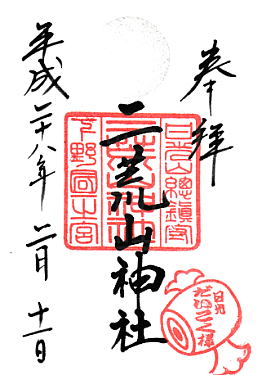 奉拝
日光山總鎮守
二荒山神社
下野国一之宮
平成二十八年二月十一日
日光
だいこく様